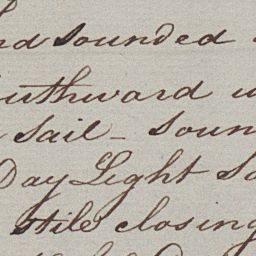 nd sounded
uthward
sail - soun
Day Light So
stile closing